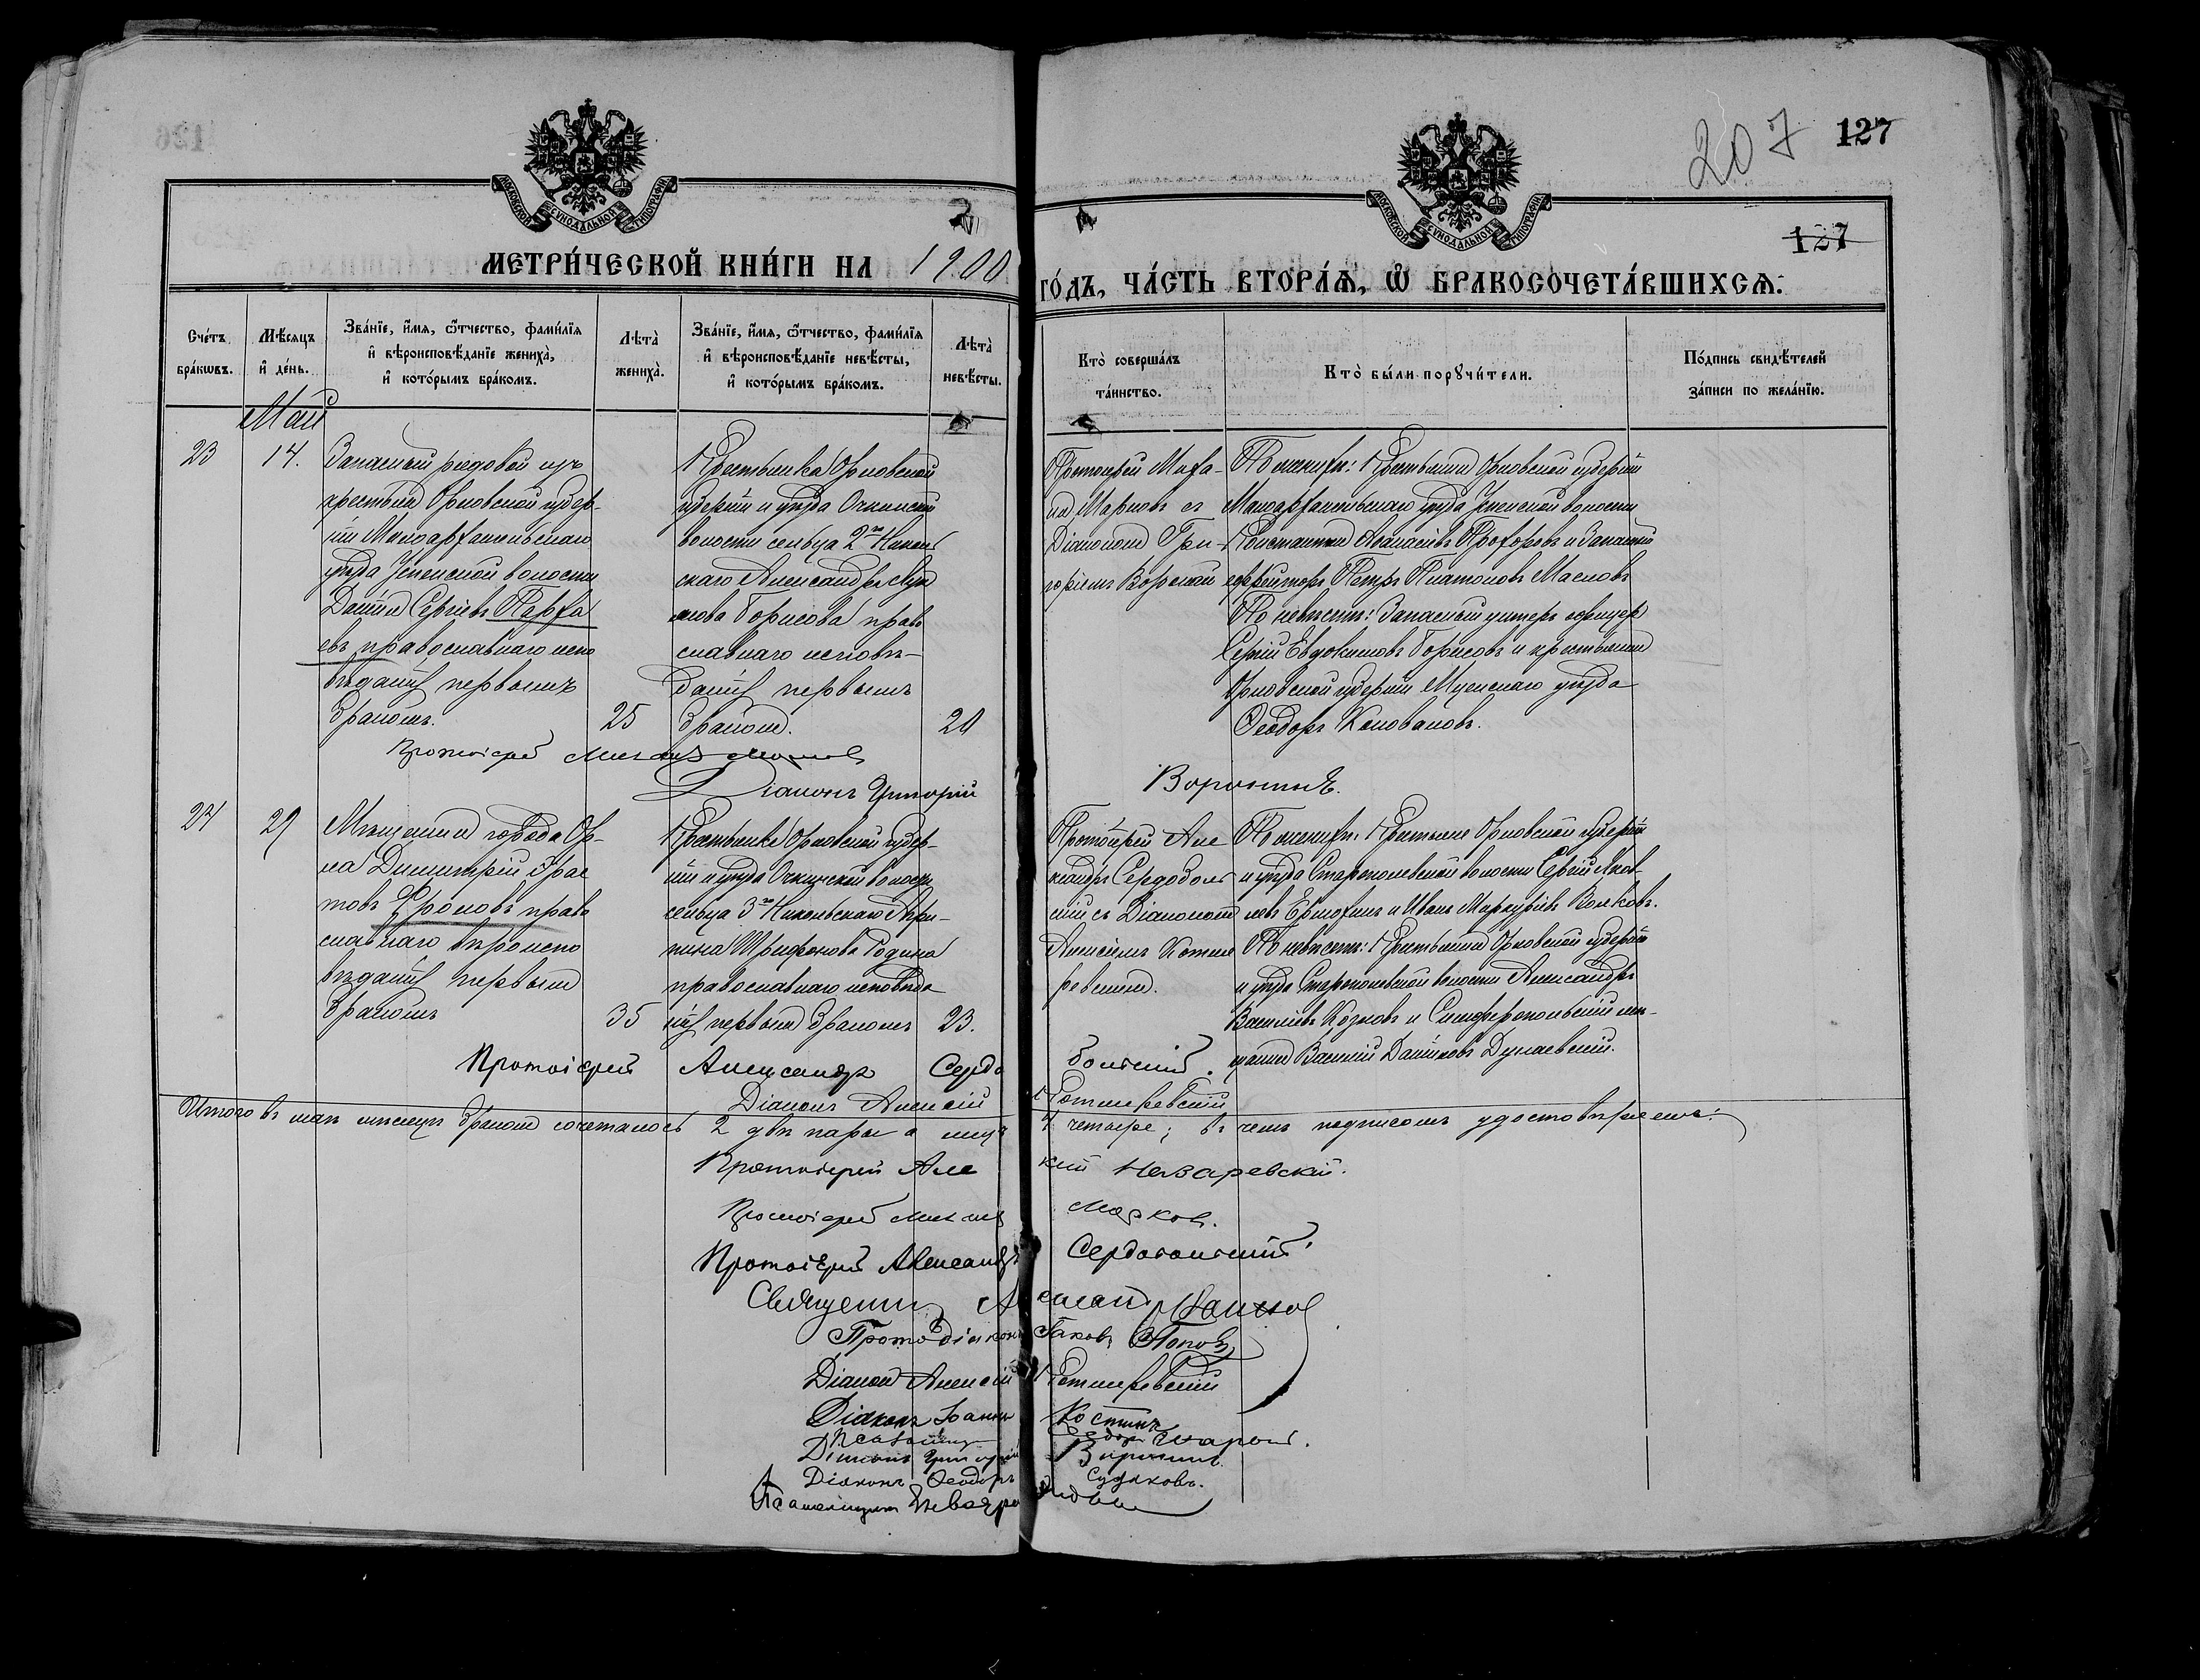 207
127
127
МОСКОВСКОЙ СѴНОДАЛЬНОЙ ТИПОГРАФІИ
МОСКОВСКОЙ СѴНОДАЛЬНОЙ ТИПОГРАФІИ
МЕТРИ́ЧЕСКОЙ КНИ́ГИ НА 1900
ГО́ДЪ, ЧА́СТЬ ВТОРА́Ѧ, Ѡ БРАКОСОЧЕТА́ВШИХСѦ:
Сче́тъ бра́кѡвъ.
Мѣ́сяцъ и҆ де́нь.
Зва́нїе, и҆́мя, ѻ҆́тчество, фами́лїя
и҆ вѣроисповѣ́данїе жениха̀,
и҆ кото́рымъ бра́комъ.
Лѣта̀
жениха̀.
Зва́нїе, и҆́мя, ѻ҆́тчество, фами́лїя
и҆ вѣроисповѣ́данїе невѣ́сты,
и҆ кото́рымъ бра́комъ.
Лѣта̀
невѣ́сты.
Кто̀ соверша́лъ
та́инство.
Кто̀ бы́ли порꙋчи́тели.
По́дпись свидѣ́телей
за́писи по жела́нїю.
Май
23
14.
Запасный рядовой изъ
крестьянъ Орловской губер-
ніи Малоархангельскаго
уѣзда Успенской волости
Даніилъ Сергіевъ Парѳе
евъ православнаго испо
вѣданія первымъ
бракомъ.
25
Крестьянка Орловской
губерніи и уѣзда Очкинской
волости сельца 2го Николь
скаго Александра
Борисова право
славнаго исповѣ-
данія первымъ
бракомъ.
20
Протоіерей Миха-
илъ Марковъ съ
Діакономъ Гри-
горіемъ
По женихѣ: Крестьяне Орловской губерніи
Малоархангельскаго уѣзда Успенской волости
Константинъ Аѳанасіевъ Прохоровъ и Запасный
ефрейторъ Петръ Платоновъ Масловъ
По невѣстѣ: Запасный унтеръ офицеръ
Сергій Евдокимовъ Борисовъ и крестьянинъ
Орловской губерніи Мценскаго уѣзда
Ѳеодоръ Коноваловъ.
Протоіерей Михаилъ Марковъ
Діаконъ Григорій
24
29
Мѣщанинъ города Ор-
ла Димитрій
Фроловъ право
славнаго вѣроиспо
вѣданія первымъ
бракомъ
35
Крестьянка Орловской губер-
ніи и уѣзда Очкинской волости
сельца 3го Никольскаго Агри-
пина Трифонова Родина
православнаго исповѣда
нія первымъ бракомъ
23.
Протоіерей Але
ксандръ Сердоболь
скій съ Діакономъ
Алексіемъ Котля
ревскимъ.
По женихѣ: Крестьяне Орловской губерніи
и уѣзда волости Сергій Яков
левъ Ермохинъ и Иванъ Меркурьевъ Волковъ.
По невѣстѣ: Крестьянинъ Орловской губерніи
и уѣзда волости Александръ
Васильевъ Козловъ и Симферопольскій мѣ-
щанинъ Василій Даниловъ Дунаевскій.
Протоіерей Александръ Сердобольскій.
Діаконъ Алексій Котляревскій
Итого въ маѣ мѣсяцѣ бракомъ сочеталось 2 двѣ пары а лицъ 4 четыре; въ чемъ подписомъ удостовѣряемъ:
Протоіерей Назаревскій.
Протоіерей Михаилъ Марковъ.
Протоіерей Александръ Сердобольскій
Священникъ
Протодіаконъ Іаковъ Поповъ
Діаконъ Алексій Котляревскій
Діаконъ Іоаннъ Костинъ
Псаломщикъ
Діаконъ Григорій
Діаконъ Ѳеодоръ Судаковъ.
Псаломщикъ